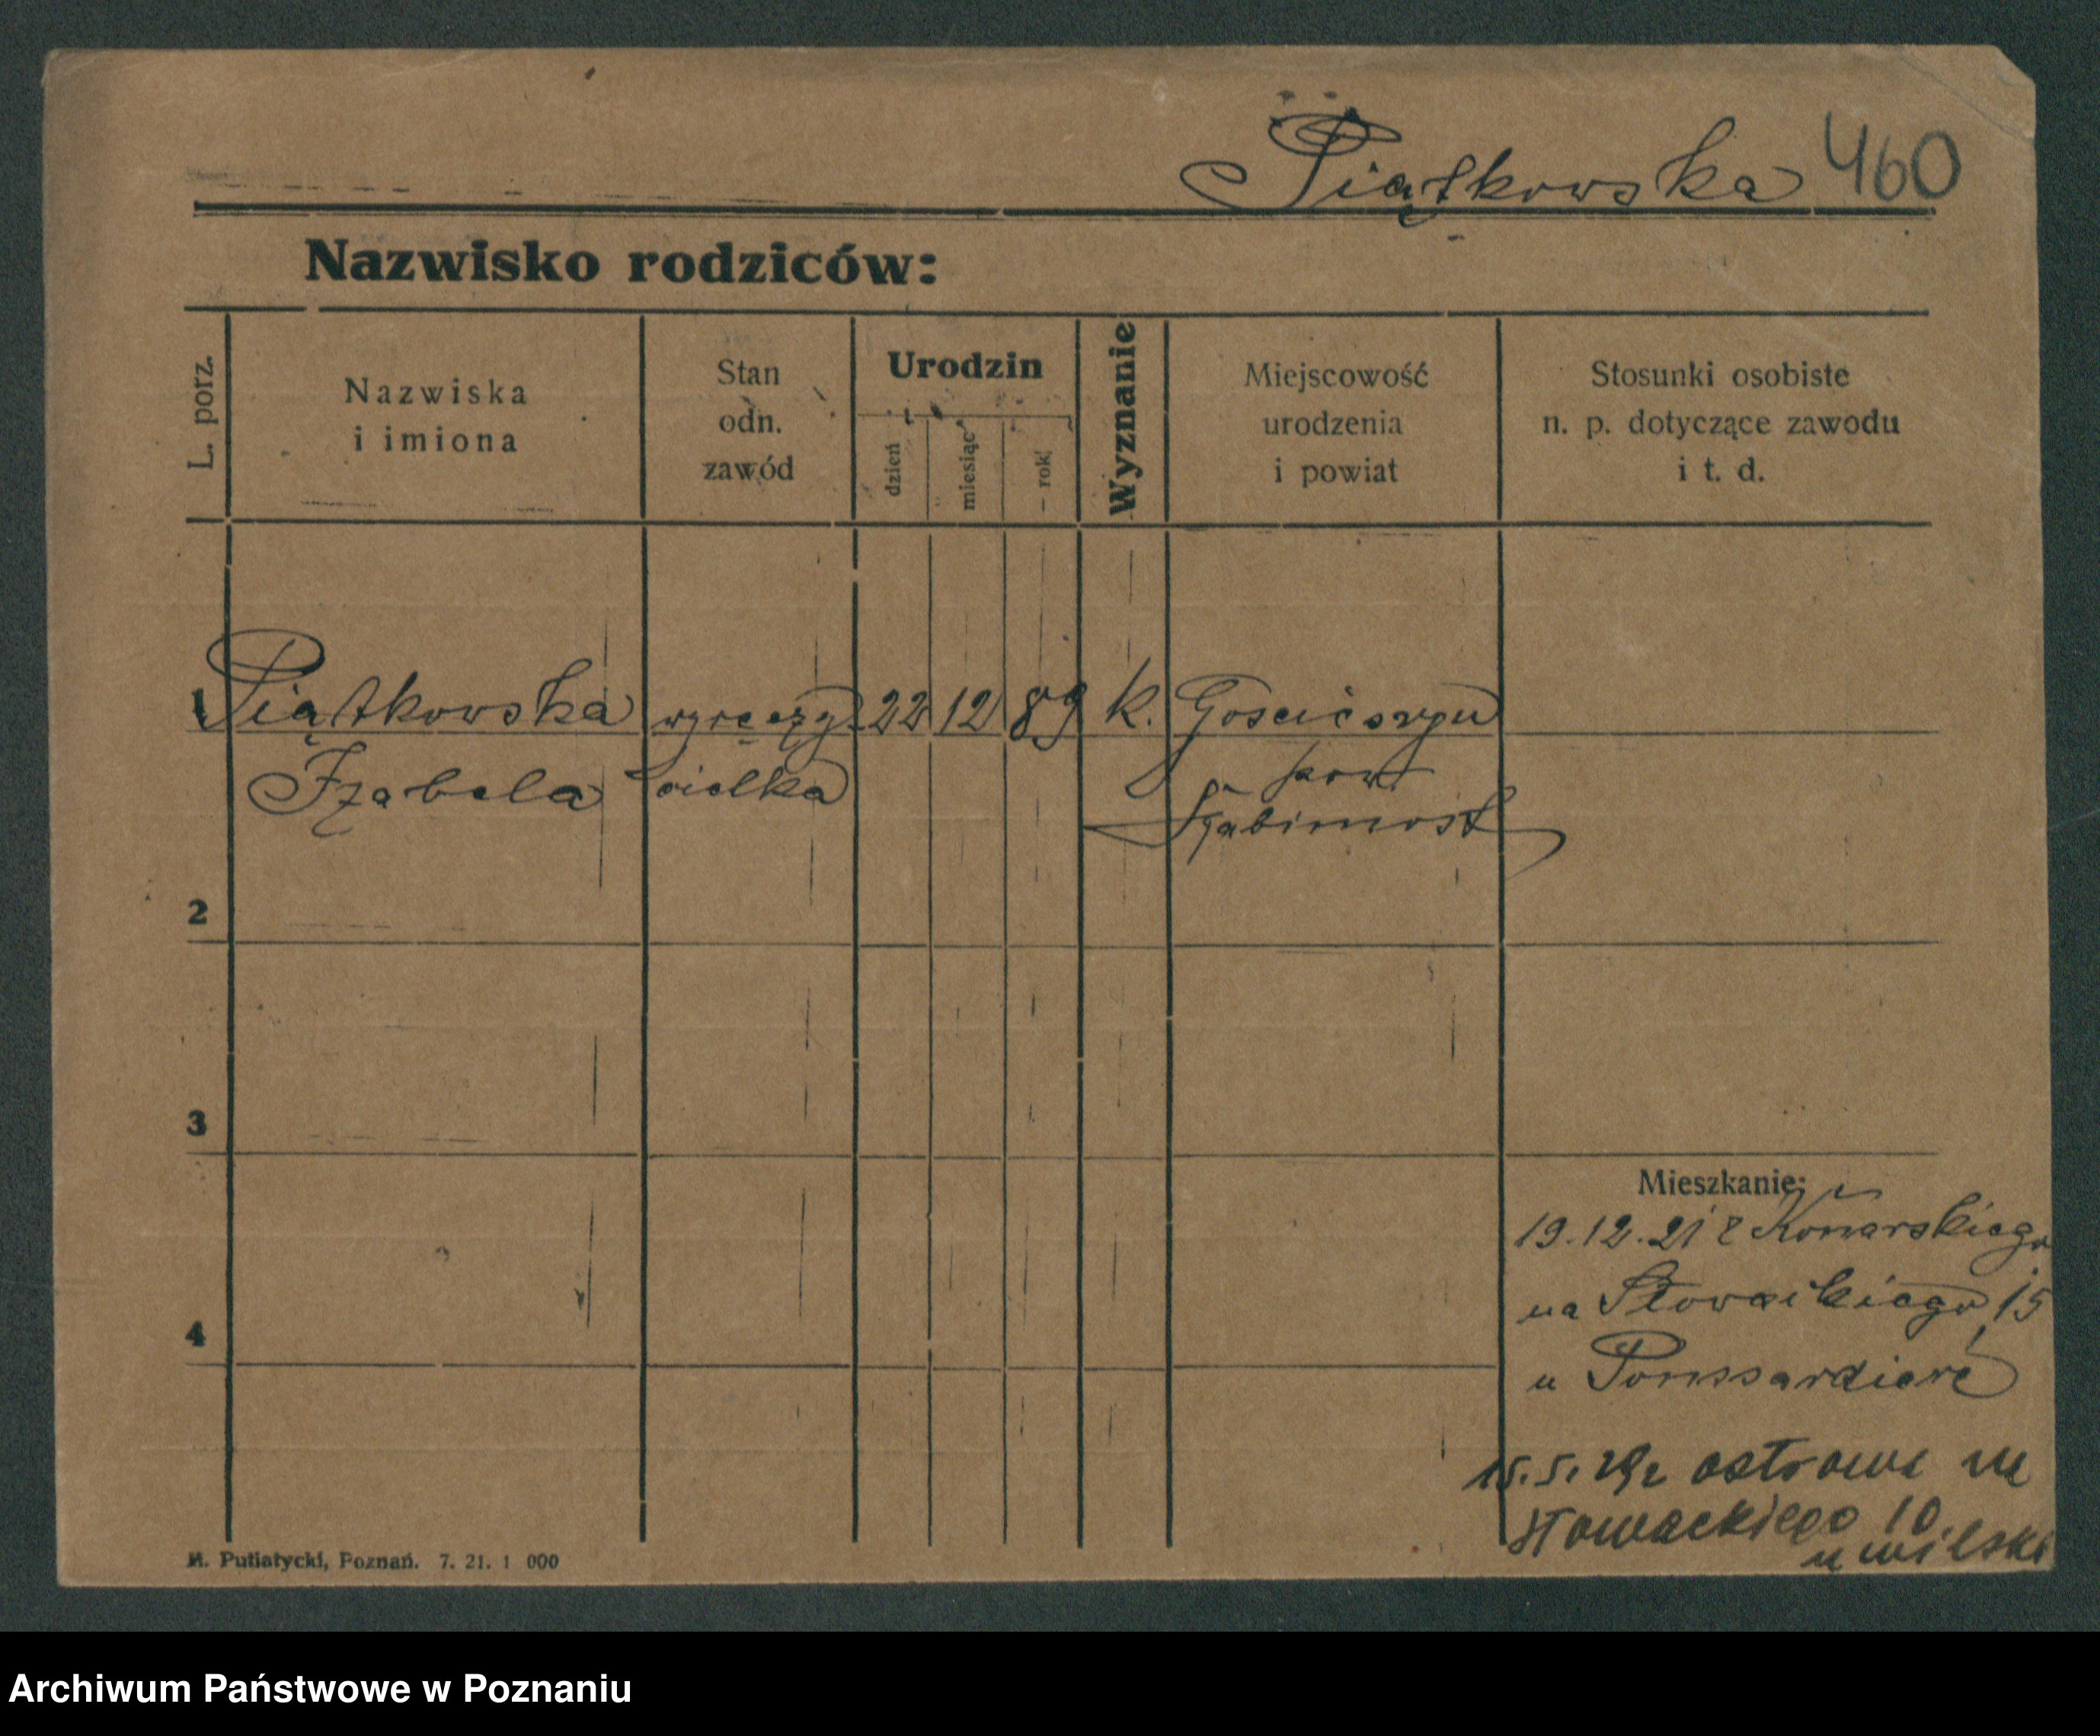 Piątkowska 460
Nazwisko rodziców:
L. porz.
Nazwiska
i imiona
Stan
odn.
zawód
Urodzin
dzień
miesiąc
rok
Wyznanie
Miejscowość
urodzenia
i powiat
Stosunki osobiste
n. p. dotyczące zawodu
i t. d.
1 Piątkowska wyręczy 22 12 89 k. Gościeszyn
Izabela cielka pow.
Babimost
2
3
4
Mieszkanie:
19.12.21 z Konarskiego
na Słowackiego 15
u Ponssardiere
15.5. na
Słowackiego 10
u
Putiatycki, Poznań. 7. 21. 1 000
Archiwum Państwowe w Poznaniu